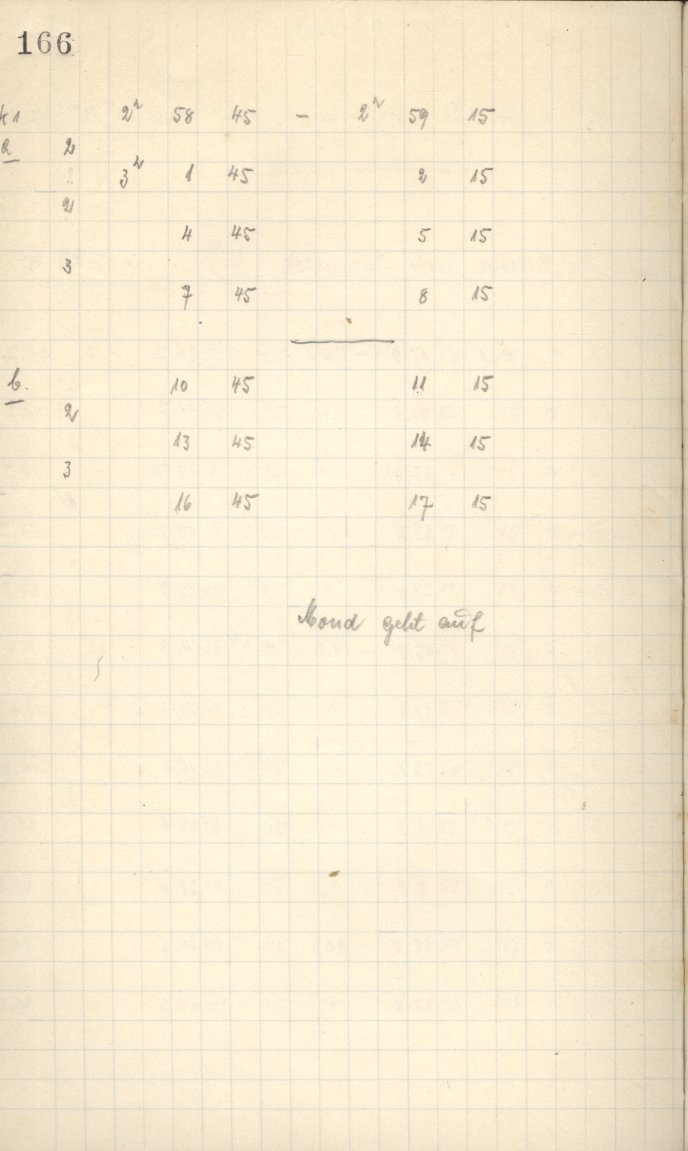 166
2ʰ 58 45 – 2ʰ 59 15
a 2
3ʰ 1 45 2 15
2
4 45 5 15
3
7 45 8 15
b. 10 45 11 15
2
13 45 14 15
3
16 45 17 15
Mond geht auf